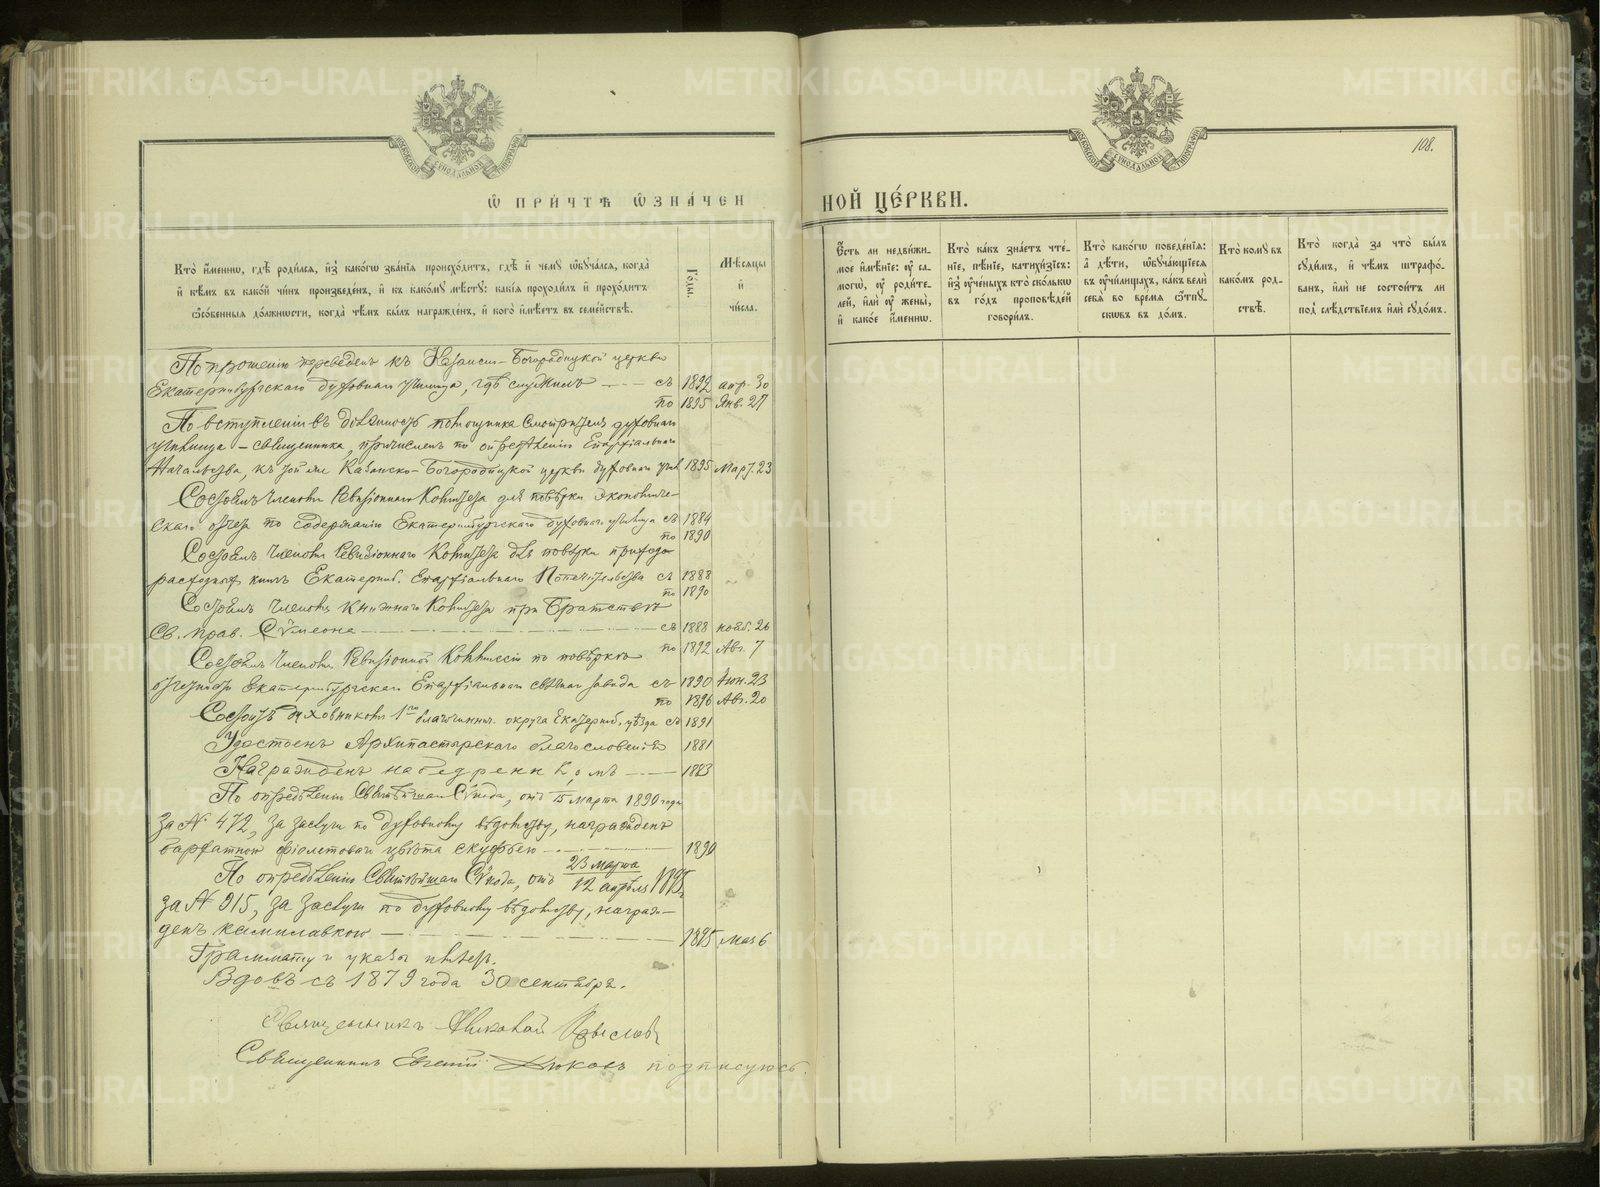 108.
Ѡ ПРИ́ЧТѢ Ѡ҆ЗНА́ЧЕННОЙ ЦЕ́РКВИ.
Кто̀ и҆́меннѡ, гдѣ̀ роди́лсѧ, и҆з̾ како́гѡ зва́нїѧ происхо́дитъ, гдѣ̀ и҆ чемꙋ̀ ѡ҆бꙋча́лсѧ, когда̀
и҆ кѣ́мъ въ како́й чи́нъ произведе́нъ, и҆ къ како́мꙋ мѣ́стꙋ: какі̑ѧ проходи́лъ и҆ прохо́дитъ
ѻ҆со́бенныѧ до́лжности, когда̀ чѣ́мъ бы́лъ награжде́нъ, и҆ кого̀ и҆мѣ́етъ въ семе́йствѣ.
Го́ды.
Мѣ́сѧцы
и҆
чи́сла.
Є҆́сть ли недви́жи-
мое и҆мѣ́нїе: ᲂу҆ са-
могѡ̀, ᲂу҆ роди́те-
лей, и҆лѝ ᲂу҆ жены̀,
и҆ како́е и҆́меннѡ.
Кто̀ ка́къ зна́етъ чте́-
нїе, пѣ́нїе, катихи́зїсъ:
и҆з̾ ᲂу҆че́ныхъ кто̀ ско́лькѡ
въ го́дъ про́повѣдей
говори́лъ.
Кто̀ како́гѡ поведе́нїѧ:
а҆ дѣ́ти, ѡ҆бꙋча́ющїесѧ
въ ᲂу҆чи́лищахъ, ка́къ велѝ
себѧ̀ во вре́мѧ ѿпꙋ-
скѡ́въ въ до́мъ.
Кто̀ комꙋ̀ въ
како́мъ род-
ствѣ̀.
Кто̀ когда̀ за что̀ бы́лъ
сꙋди́мъ, и҆ чѣ́мъ штрафо́-
ванъ, и҆лѝ не состои́тъ ли
под̾ слѣ́дствїемъ и҆лѝ сꙋдо́мъ.
По прошенію переведенъ къ Казанско-Богородицкой церкви
Екатеринбургскаго духовнаго училища, гдѣ служилъ — съ 1892 апр. 30
по 1895 Янв. 27
По вступленіи въ должность помощника Смотрителя духовнаго
училища – священника, причисленъ по опредѣленію Епархіальнаго
Начальства, къ той же Казанско-Богородицкой церкви духовнаго учил. 1895 Март. 23
Состоялъ членомъ Ревизіоннаго Комитета для повѣрки экономиче-
скаго отчета по содержанію Екатеринбургскаго духовнаго училища съ 1884
по 1890
Состоялъ членомъ Ревизіоннаго Комитета для повѣрки приходо-
расходныхъ книгъ Екатеринб. Епархіальнаго Попечительства съ 1888
по 1890
Состоялъ членомъ Книжнаго Комитета при Братствѣ
Св. прав. Сѵмеона — съ 1888 нояб. 26
по 1892 Авг. 7
Состоялъ членомъ Ревизіонной Коммиссіи по повѣркѣ
отчетности Екатеринбургскаго Епархіальнаго свѣчнаго завода съ 1890 Іюн. 23
по 1896 Авг. 20
Состоитъ духовникомъ 1го благочиннич. округа Екатеринб. уѣзда съ 1891
Удостоенъ Архипастырскаго благословенія 1881
Награжденъ набедренникомъ — 1883
По опредѣленію Святѣйшаго Сѵнода, отъ 15 марта 1890 года
за № 472, за заслуги по духовному вѣдомству, награжденъ
бархатною фіолетовою цвѣта скуфьею — 1890
По опредѣленію Святѣйшаго Сѵнода, отъ 23 марта / 12 апрѣля 1895
за № 915, за заслуги по духовному вѣдомству, награж-
денъ камилавкою — 1895 мая 6
Граммату и указы имѣетъ.
Вдовъ съ 1879 года 30 сентября.
Священникъ Николай
Священникъ Евгеній Дюковъ подписуюсь.
METRIKI.GASO-URAL.RU